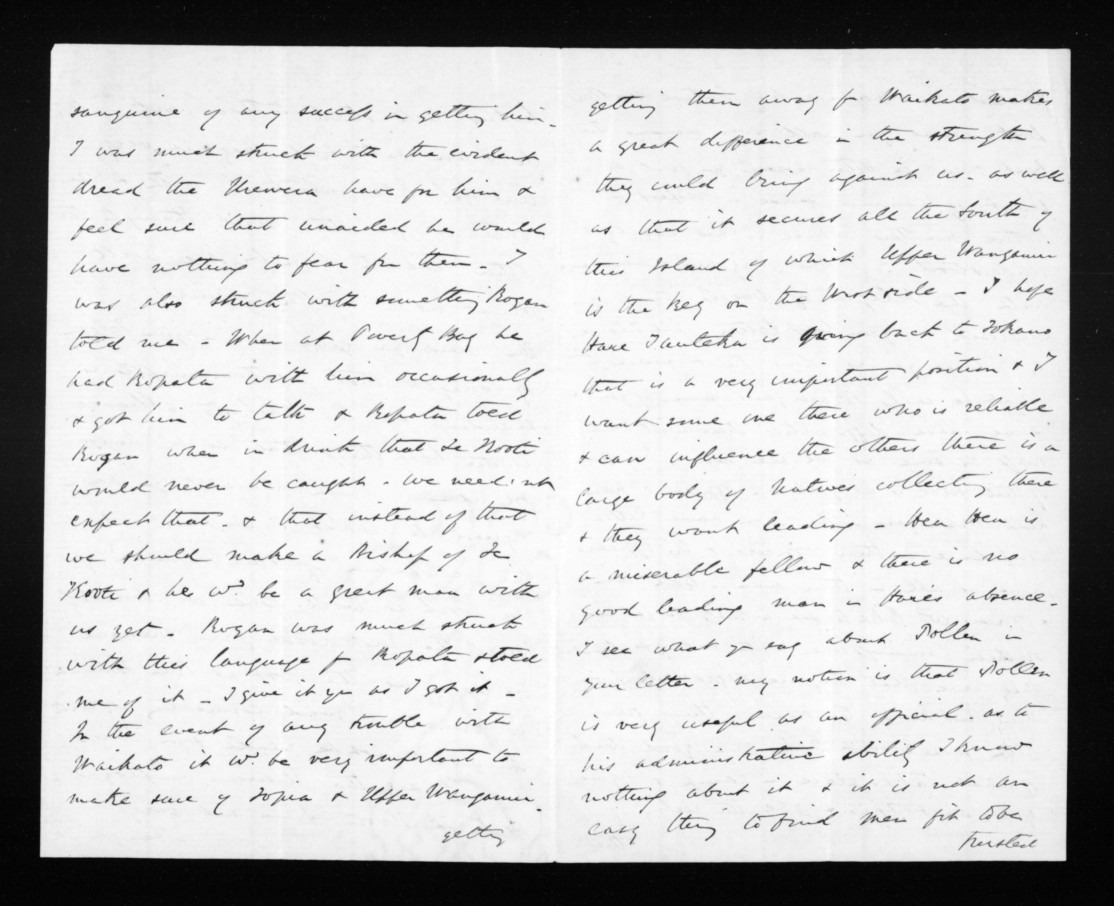 sanguine of any success in getting him -
I was much struck with the evident
dread the Urewera have for him &
feel sure that unaided he would
have nothing to fear fm them - I
was also struck with something Rogan
told me - When at Povery Bay he
had Ropata with him occasionally
& got him to talk & Ropata toed
Rogan when in drink that Te Kooti
would never be caught. we need not
expect that. & that instead of that
we should make a Bishop of Te
Kooti & he wd. be a great man with
us yet - Rogan was much struck
with this language fm Ropata & told
me of it - I give it yu as I got it -
In the event of any trouble with
Waikato it wd. be very important to
make sure of Topia & Upper Wanganui -
getting
getting them away fm Waikato makes
a great difference in the strength
they could bring against us - as well
as that it secures all the South of
this Island of which Upper Wanganui
is the key on the West side - I hope
Hare Tauteka is going back to Tokano
that is a very important position & I
want some one there who is reliable
& can influence the others there is a
large body of Natives collecting there
& they want leading - Heu Heu is
a miserable fellow & there is no
good leading man in Hare's absence -
I see what yu say about Pollen in
your letter - my notion is that Pollen
is very useful as an official - as to
his administrative ability I know
nothing about it & it is not an
easy thing to find men fit to be
trusted